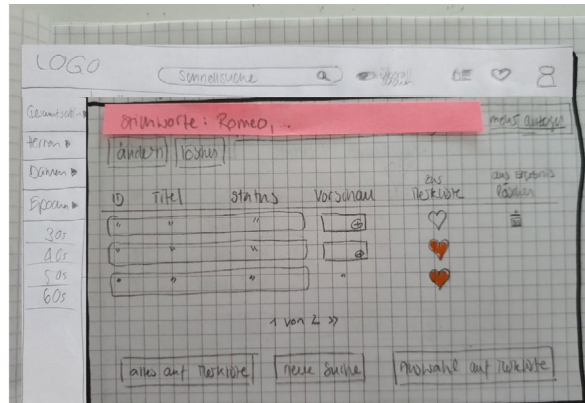 LOGO
Schnellsuche
Herren
Damen
Epochen
30s
40s
50s
60s
Stichworte: Romeo, ..
mehr anzeigen
ändern löschen
ID Titel Status Vorschau zur Merkliste aus Ergebnis löschen
" " "
" " "
" " " "
1 von 2 >>
alles auf Merkliste neue Suche Auswahl auf Merkliste